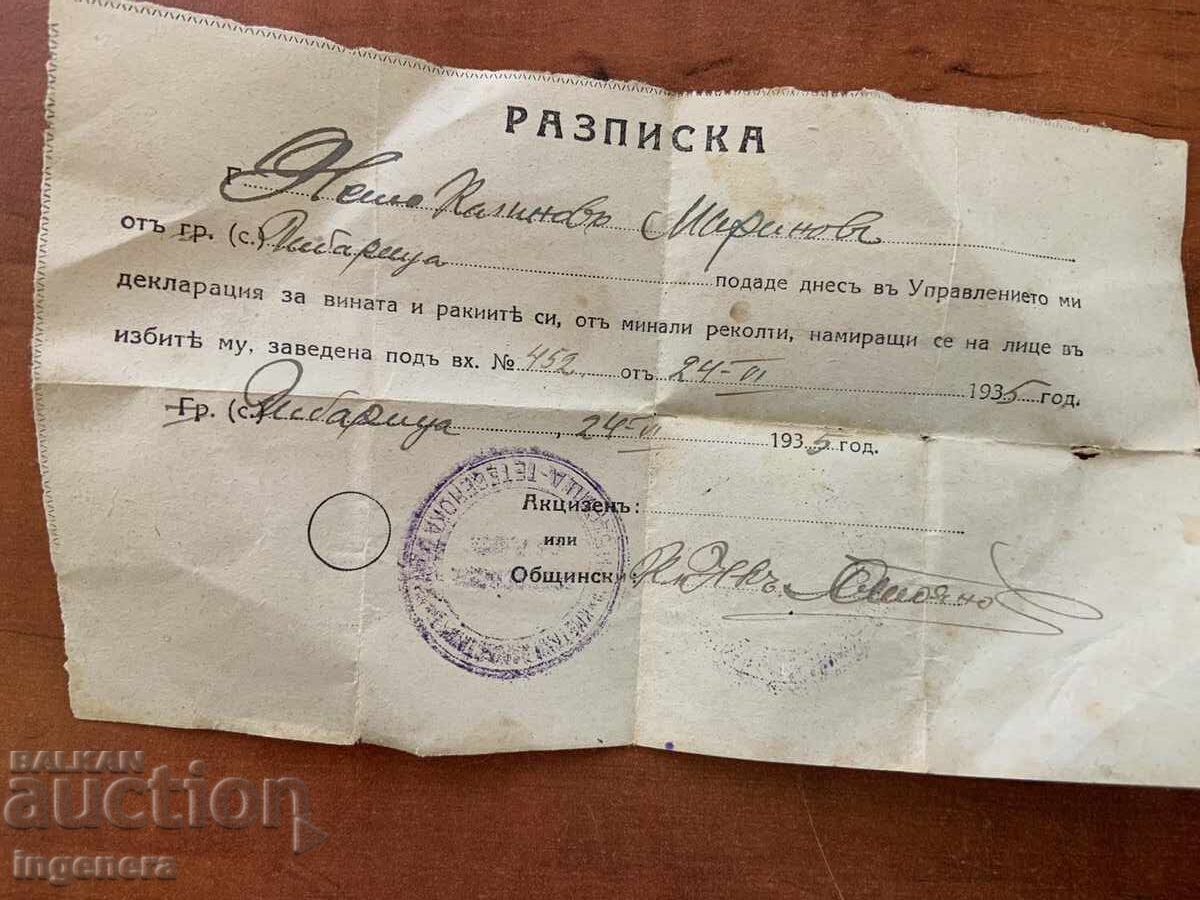 РАЗПИСКА
Г. Нешо Калиновъ Мариновъ
отъ гр. (с.) Рибарица подаде днесъ въ Управлението ми
декларация за вината и ракиитѣ си, отъ минали реколти, намиращи се на лице въ
избитѣ му, заведена подъ вх. № 452 отъ 24-VI 1935 год.
Гр. (с.) Рибарица, 24-VI 1935 год.
Акцизенъ:
или
Общински:
ТЕТЕВЕНСКА
BALKAN
auction
ingenera